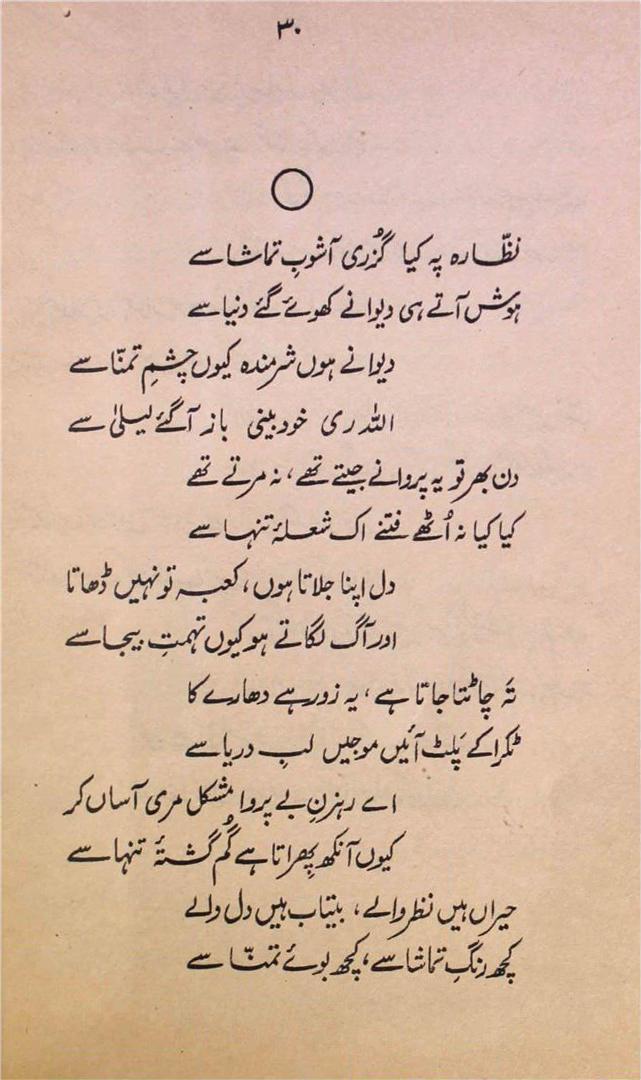 ۳۰
نظّارہ پہ کیا گُزری آشوبِ تماشا سے
ہوش آتے ہی دیوانے کھوئے گئے دنیا سے
دیوانے ہوں شرمندہ کیوں چشمِ تمنّا سے
اللہ ری خود بینی باز آگئے لیلیٰ سے
دن بھر تو یہ پروانے جیتے تھے، نہ مرتے تھے
کیا کیا نہ اُٹھے فتنے اک شعلۂ تنہا سے
دل اپنا جلاتا ہوں، کعبہ تو نہیں ڈھاتا
اور آگ لگاتے ہو کیوں تہمتِ بیجا سے
تَہ چاٹتا جاتا ہے، یہ زور ہے دھارے کا
ٹکرا کے پَلٹ آئیں موجیں لبِ دریا سے
اے رہزنِ بے پروا مشکل مری آساں کر
کیوں آنکھ پھِراتا ہے گُم گشتۂ تنہا سے
حیراں ہیں نظر والے، بیتاب ہیں دل والے
کچھ رنگِ تماشا سے، کچھ بوئے تمنّا سے